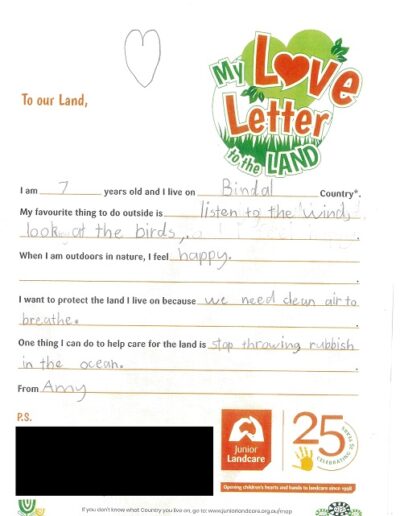 My Love
Letter
to the LAND
To our Land,
I am 7 years old and I live on Bindal Country*.
My favourite thing to do outside is listen to the wind,
look at the birds,.
When I am outdoors in nature, I feel happy.
.
I want to protect the land I live on because we need clean air to
breathe.
One thing I can do to help care for the land is stop throwing rubbish
in the ocean.
From Amy
P.S.
Junior
Landcare
25
CELEBRATING 25 YEARS
Opening children's hearts and hands to landcare since 1998
If you don't know what Country you live on, go to: www.juniorlandcare.org.au/map